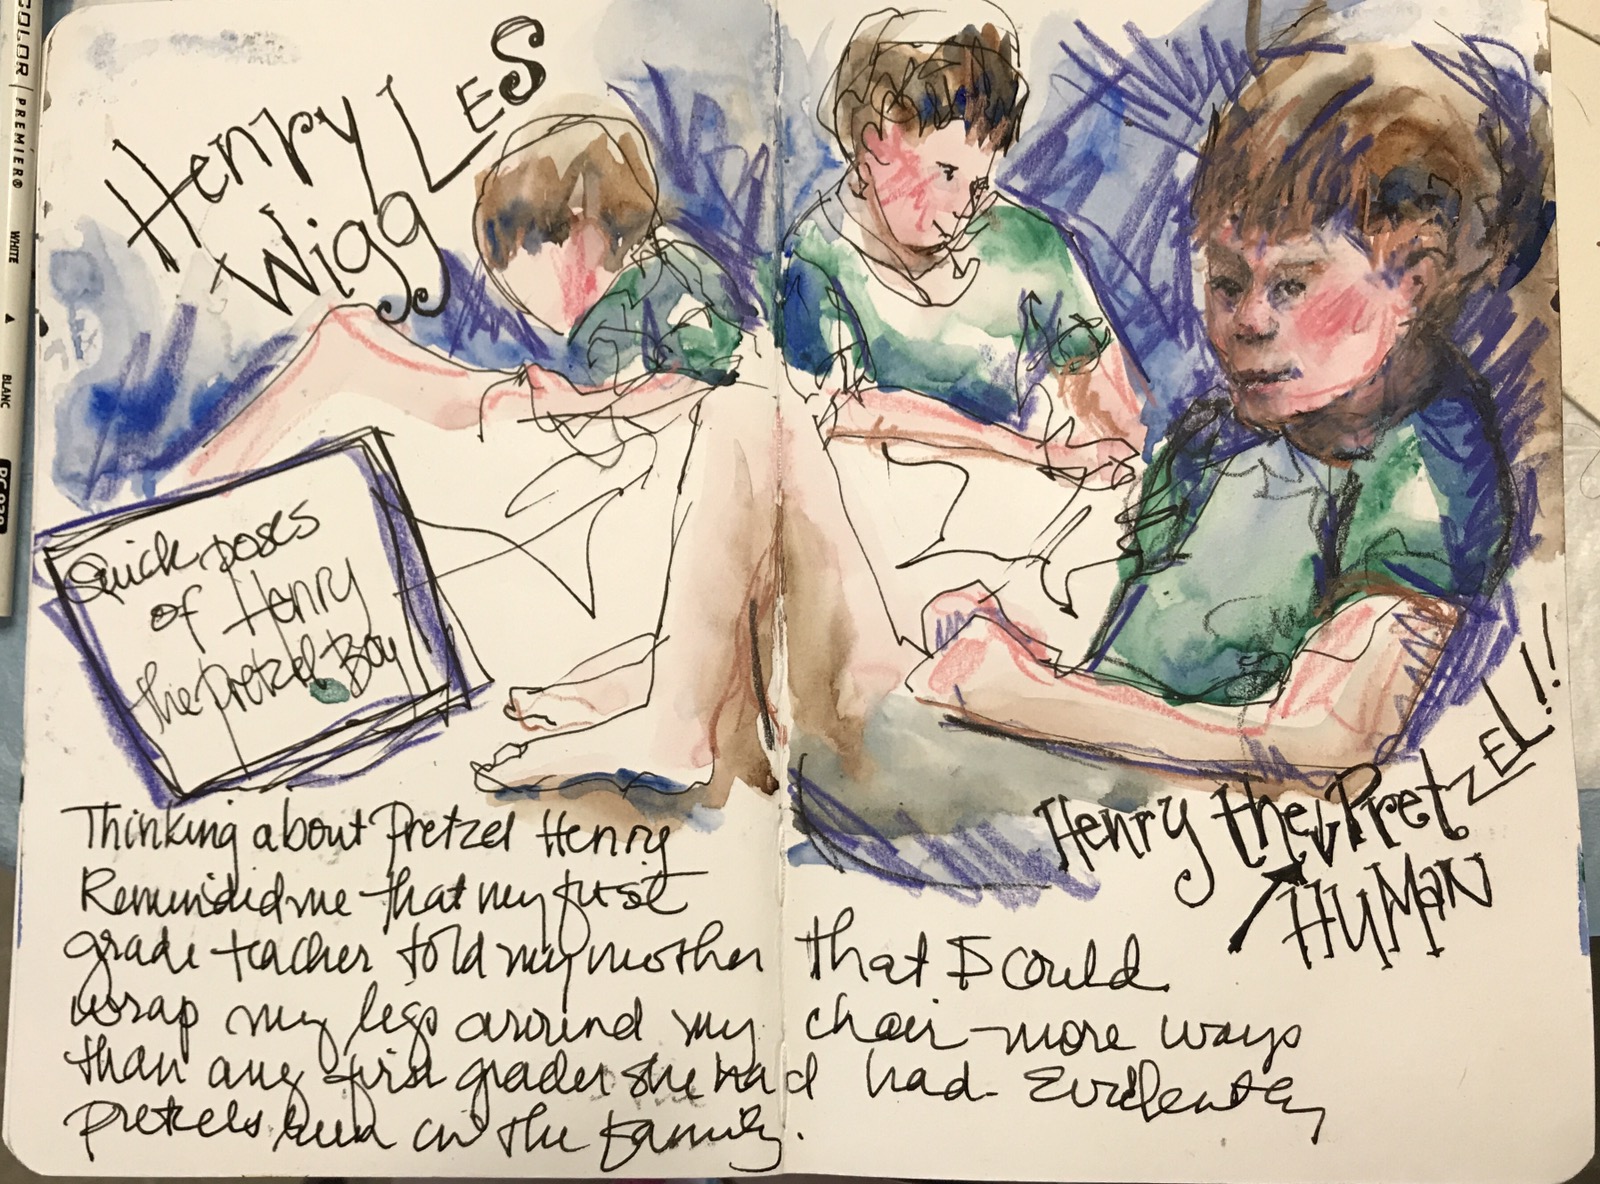 COLOR PREMIER® WHITE ▲ BLANC PC 938
Henry
WiggLES
Quick poses
of Henry
the Pretzel Boy
Henry the Pretzel!!
HUMAN
Thinking about Pretzel Henry
Reminded me that my first
grade teacher told my mother that I could
wrap my legs around my chair more ways
than any first grader she had had. Evidently
pretzels run in the family.